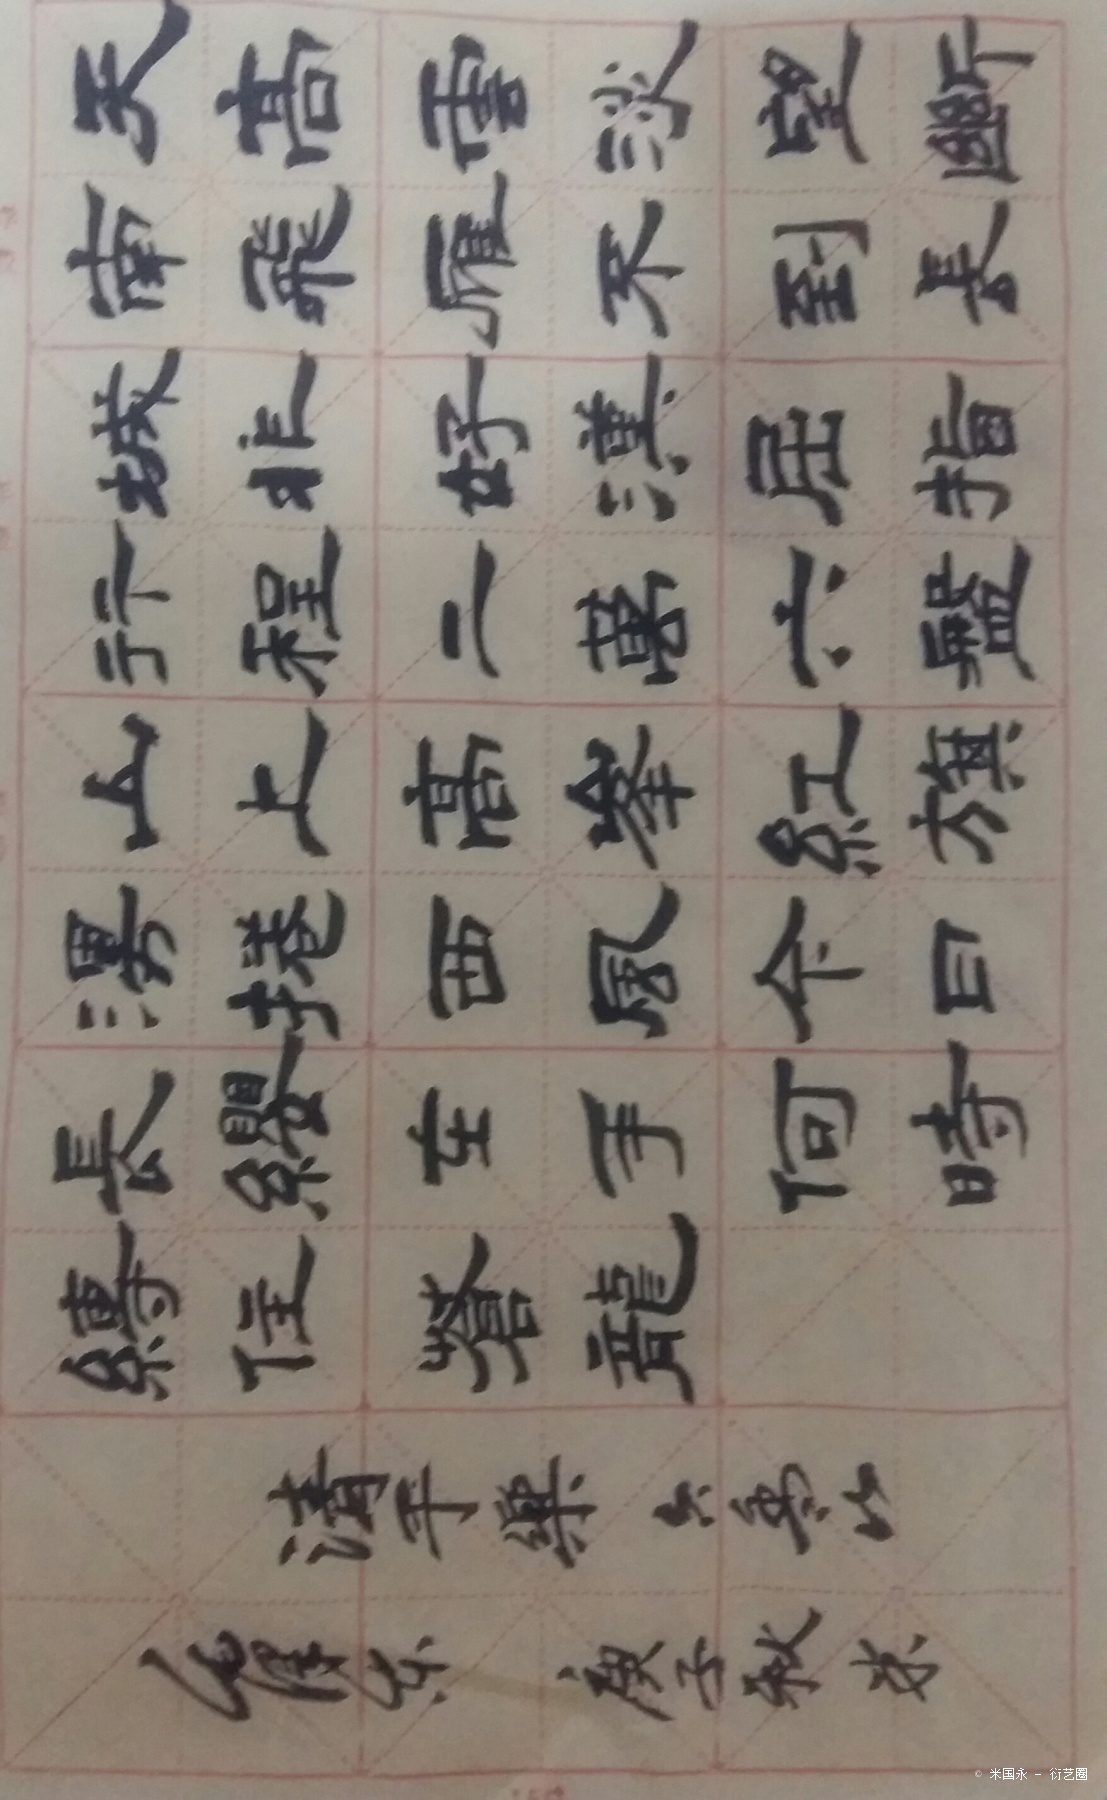 天高雲淡望斷
南飛雁不到長
城非好漢屈指
行程二萬六盤
山上高峯紅旗
漫捲西風今日
長纓在手何時
縛住蒼龍
清平樂 六盤山
毛澤東 庚子秋
© 米国永 - 衍艺圈